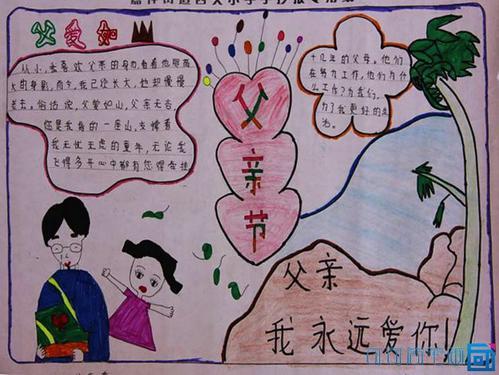 父爱如
从小,去喜欢父亲的身力,看着他那高
大的身影,而今,我已经长大,他却慢慢
老去。俗话说,父爱如山,父亲无言
您是我背的一座山,支撑着
我无忧无虑的童年,无论我
飞得多千心中都有您得牵挂
十几年的父母。他们
在努力工作,他们为什
么工作?为我们,
为了我更好的生
活。
父
亲
节
父亲
我永远爱你!